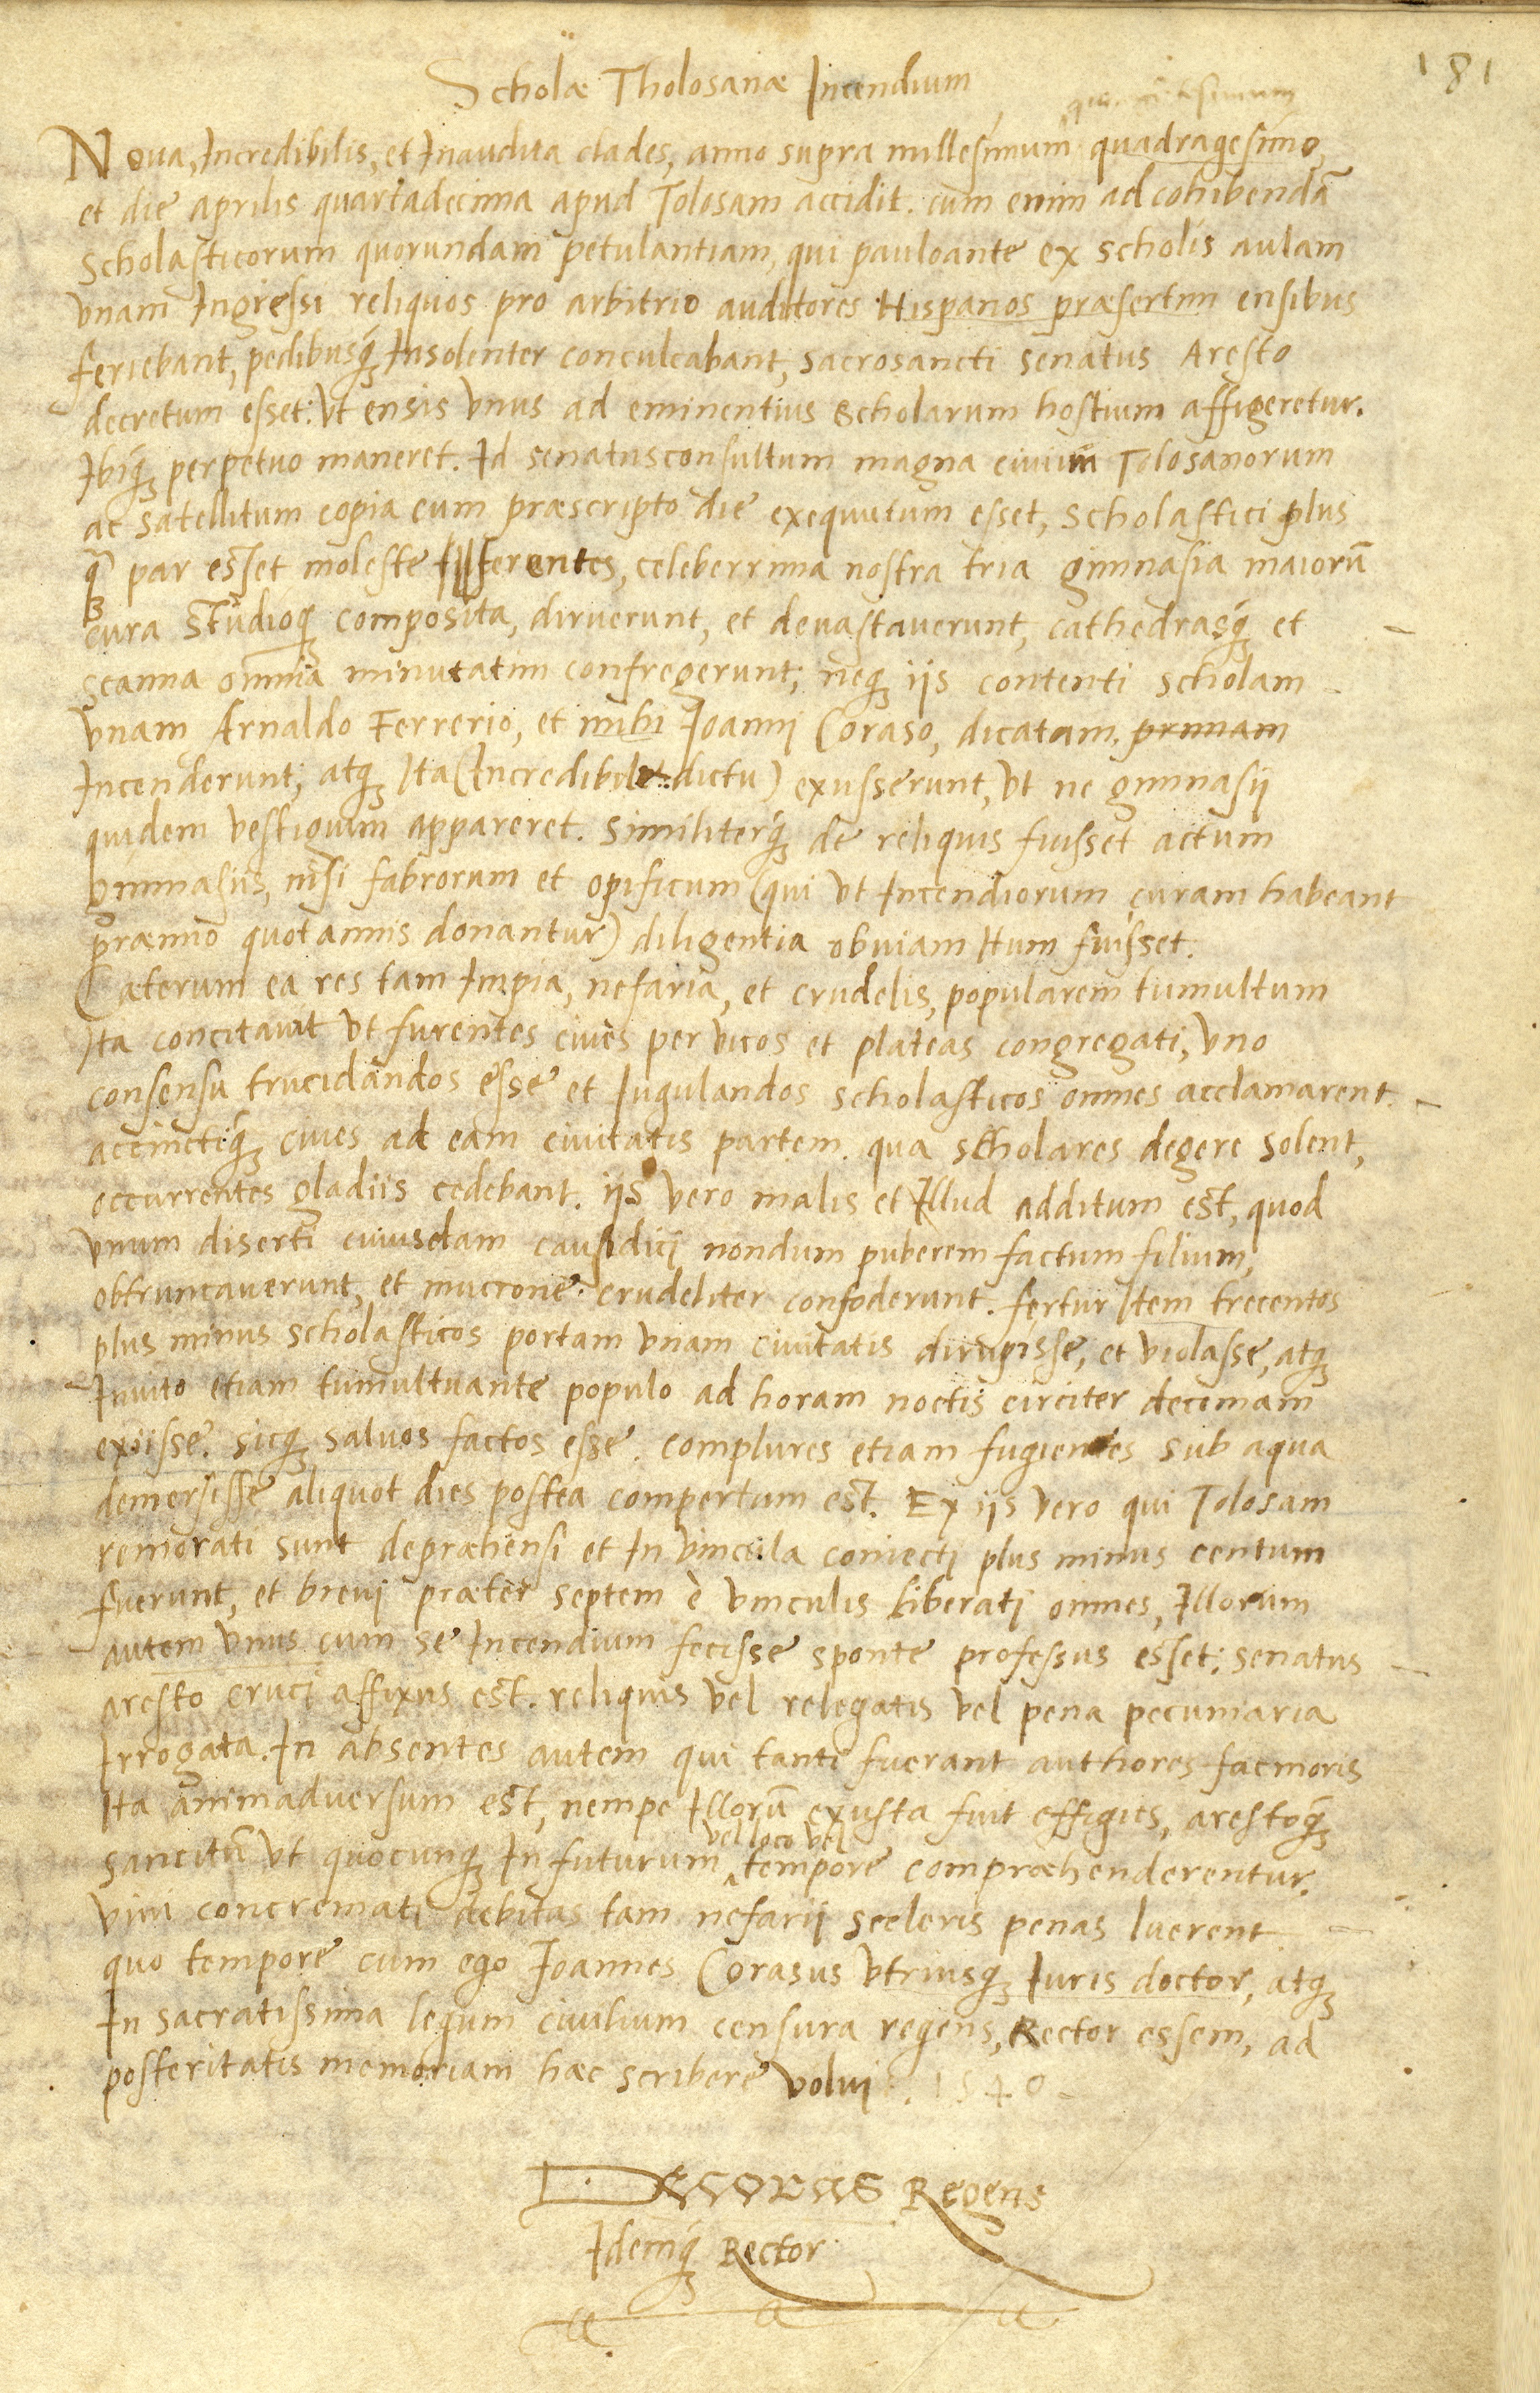 181
Scholæ Tholosanæ Incendium
Noua, Incredibilis, et Inaudita clades, anno supra millesimum quadragesimo,
et die aprilis quartadecima apud Tolosam accidit. cum enim ad cohibendā
scholasticorum quorundam petulantiam, qui pauloante ex scholis aulam
vnam Ingressi reliquos pro arbitrio auditores Hispanos præsertim ensibus
feriebant, pedibusq́ꝫ Insolenter conculcabant, sacrosancti senatus Aresto
decretum esset: vt ensis vnus ad eminentius scholarum hostium affigeretur.
Ibiq́ꝫ perpetuo maneret. Id senatusconsultum magna ciuium Tolosanorum
ac satellitum copia cum præscripto die exequutum esset, scholastici plus
q̄ꝫ par esset moleste ferentes, celeberrima nostra tria gimnasia maiorū
cura studioq́ꝫ composita, diruerunt, et deuastauerunt, cathedrasq́ꝫ et
scanna omnia minutatim confregerunt; neqꝫ iis contenti scholam
vnam Arnaldo Ferrerio, et mihi Joanni Coraso, dicatam primam
Incenderunt; atqꝫ Ita (Incredibile dictu) exusserunt, vt ne gimnasij
quidem vestigium appareret. similiterq́ꝫ de reliquis fuisset actum
gimnasiis, nisi fabrorum et opificum (qui vt Incendiorum curam habeant
præmio quotannis donantur) diligentia obuiam Itum fuisset.
Cæterum ea res tam Impia, nefaria, et crudelis, popularem tumultum
Ita concitauit vt furentes ciues per vicos et plateas congregati, vno
consensu trucidandos esse et Iugulandos scholasticos omnes acclamarent.
accinctiq́ꝫ ciues ad eam ciuitatis partem qua scholares degere solent,
occurrentes gladiis cedebant. iis vero malis et Illud additum est, quod
vnum diserti cuiusdam causidici nondum puberem factum filium,
obtruncauerunt, et mucrone crudeliter confoderunt. fertur Item trecentos
plus minus scholasticos portam vnam ciuitatis dirupisse, et violasse, atqꝫ
Inuito etiam tumultuante populo ad horam noctis circiter decimam
exiisse. sicqꝫ saluos factos esse. complures etiam fugientes sub aqua
demersisse aliquot dies postea compertum est. Ex iis vero qui Tolosam
remorati sunt depræhensi et In vincula coniecti plus minus centum
fuerunt, et breui præter septem è vinculis liberati omnes, Illorum
autem vnus cum se Incendium fecisse sponte professus esset; senatus
aresto cruci affixus est. reliquis vel relegatis vel pena pecuniaria
Irrogata. In absentes autem qui tanti fuerant authores facinoris
Ita animaduersum est, nempe Illorū exusta fuit effigies, arestoq́ꝫ
vel loco vel
sancitū vt quocunqꝫ In futurum ‸ tempore compræhenderentur.
viui concremati debitas tam nefarij sceleris penas luerent
quo tempore cum ego Joannes Corasus vtriusqꝫ Iuris doctor, atqꝫ
In sacratissima legum ciuilium censura regens, Rector essem, ad
posteritatis memoriam hæc scribere volui. 1540
Regens
Idemq́ꝫ Rector